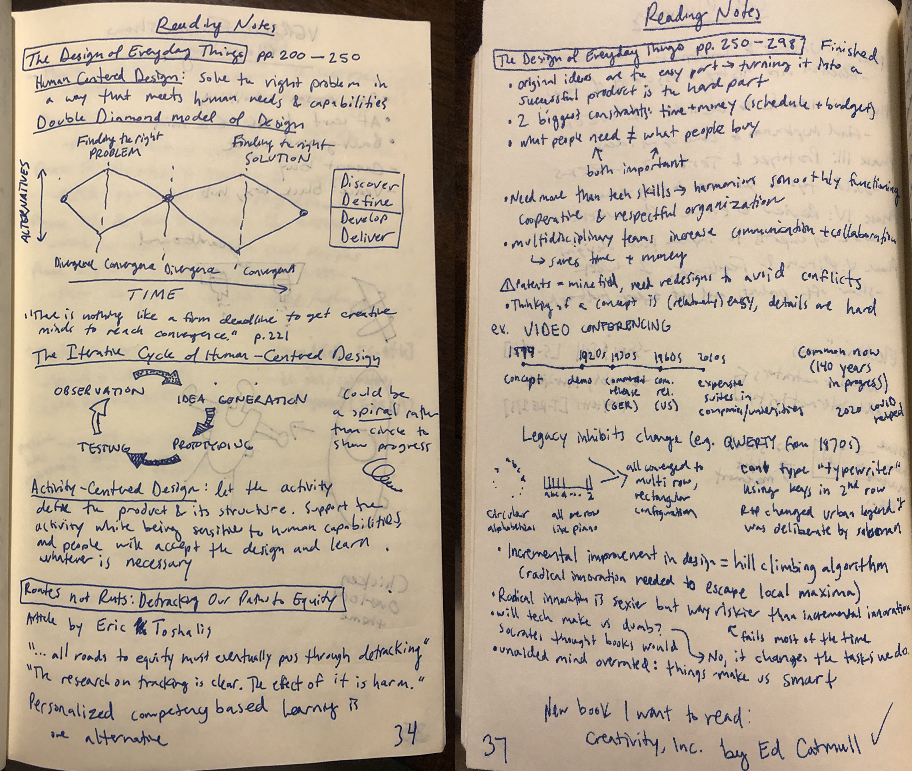 Reading Notes
The Design of Everyday Things pp. 200 – 250
Human Centered Design: solve the right problem in
a way that meets human needs & capabilities
Double Diamond model of Design
Finding the right
PROBLEM
Finding the right
SOLUTION
ALTERNATIVES
Discover
Define
Develop
Deliver
Divergence Convergence Divergence Convergence
TIME
"There is nothing like a firm deadline to get creative
minds to reach convergence." p.221
The Iterative Cycle of Human-Centered Design
OBSERVATION
IDEA GENERATION
TESTING
PROTOTYPING
Could be
a spiral rather
than circle to
show progress
Activity-Centered Design: let the activity
define the product & its structure. Support the
activity while being sensitive to human capabilities
and people will accept the design and learn
whatever is necessary
Routes not Ruts: Detracking Our Path to Equity
Article by Eric Toshalis
"... all roads to equity must eventually pass through detracking"
"The research on tracking is clear. The effect of it is harm."
Personalized competency based learning is
one alternative
34
Reading Notes
The Design of Everyday Things pp. 250 – 298 Finished
• original ideas are the easy part → turning it into a
successful product is the hard part
• 2 biggest constraints: time + money (schedule + budget)
• what people need ≠ what people buy
both important
• Need more than tech skills → harmonious smoothly functioning
cooperative & respectful organization
• multidisciplinary teams increase communication + collaboration
↳ saves time + money
⚠ Patents = minefield, need redesigns to avoid conflicts
• Thinking of a concept is (relatively) easy, details are hard
ex. VIDEO CONFERENCING
1879 1920s 1930s 1960s 2010s
concept
demo
commercial
release
(GER)
com.
rel.
(US)
expensive
suites in
companies/universities
Common now
(140 years
in progress)
2020 covid
helped
Legacy inhibits change (e.g. QWERTY from 1870s)
circular
alphabetical
a b c d ... z
all one row
like piano
all converged to
multi row,
rectangular
configuration
can type "typewriter"
using keys in 2nd row
R+P changed urban legend it
was deliberate by salesman
• Incremental improvement in design = hill climbing algorithm
(radical innovation needed to escape local maxima)
• Radical innovation is sexier but way riskier than incremental innovation
fails most of the time
• will tech make us dumb?
Socrates thought books would
→ No, it changes the tasks we do.
• unaided mind overrated: things make us smart
New book I want to read:
Creativity, Inc. by Ed Catmull ✓
37